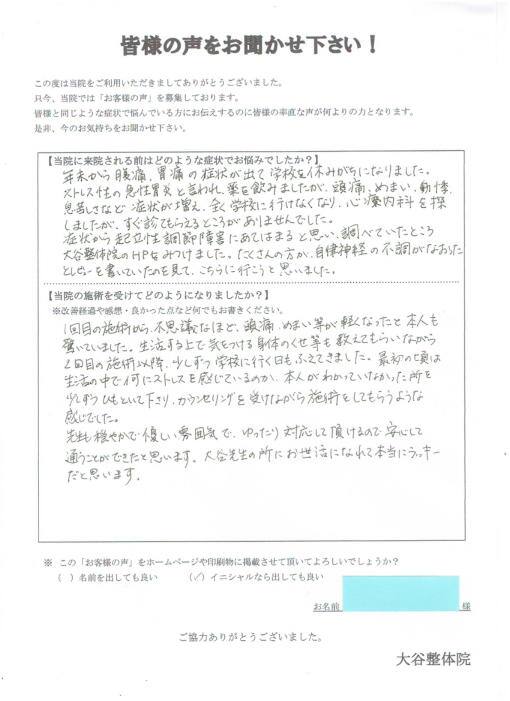 皆様の声をお聞かせ下さい！
この度は当院をご利用いただきましてありがとうございました。
只今、当院では「お客様の声」を募集しております。
皆様と同じような症状で悩んでいる方にお伝えするのに皆様の率直な声が何よりの力となります。
是非、今のお気持ちをお聞かせ下さい。
【当院に来院される前はどのような症状でお悩みでしたか？】
年末から腹痛、胃痛の症状が出て学校を休みがちになりました。
ストレス性の急性胃炎と言われ、薬を飲みましたが、頭痛、めまい、動悸、
息苦しさなど症状が増え、全く学校に行けなくなり、心療内科を探
しましたが、すぐ診てもらえるところがありませんでした。
症状から起立性調節障害にあてはまると思い、調べていたところ
大谷整体院のHPをみつけました。たくさんの方が、自律神経の不調がなおった
とレビューを書いていたのを見て、こちらに行こうと思いました。
【当院の施術を受けてどのようになりましたか？】
※改善経過や感想・良かった点など何でもお書きください。
1回目の施術から、不思議なほど、頭痛、めまい等が軽くなったと本人も
驚いていました。生活する上で気をつける身体のくせ等も教えてもらいながら
2回目の施術以降、少しずつ学校に行く日もふえてきました。最初の頃は
生活の中で何にストレスを感じているのか、本人がわかっていなかった所を
少しずつひもといて下さり、カウンセリングを受けながら施術をしてもらうような
感じでした。
先生も穏やかで優しい雰囲気で、ゆったり対応して頂けるので安心して
通うことができたと思います。大谷先生の所にお世話になれて本当にラッキー
だと思います。
※ この「お客様の声」をホームページや印刷物に掲載させて頂いてよろしいでしょうか？
（ ）名前を出しても良い （✓）イニシャルなら出しても良い
お名前 様
ご協力ありがとうございました。
大谷整体院